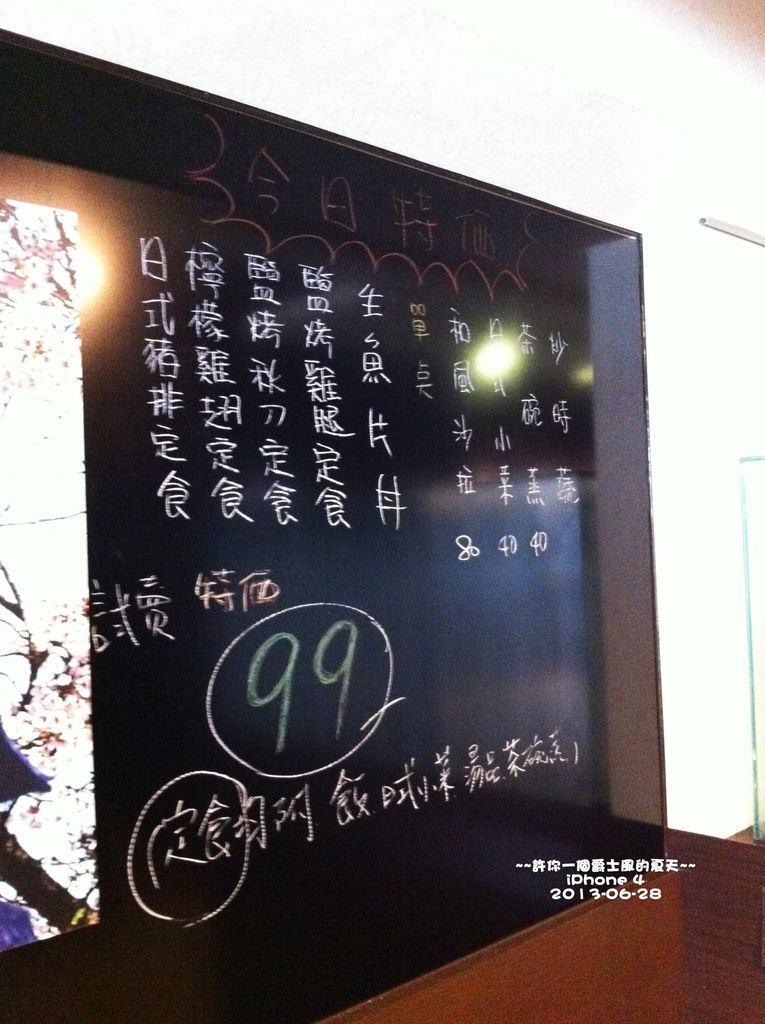 今日特価
日式豬排定食
檸檬雞翅定食
鹽烤秋刀定食
鹽烤雞腿定食
生魚片丼
單点
和風沙拉 80
日式小菜 40
茶碗蒸 40
炒時蔬
試賣 特価
99
定食 附 飯 日式小菜 湯品 茶碗蒸
~~許你一個爵士風的夏天~~
iPhone 4
2013-06-28